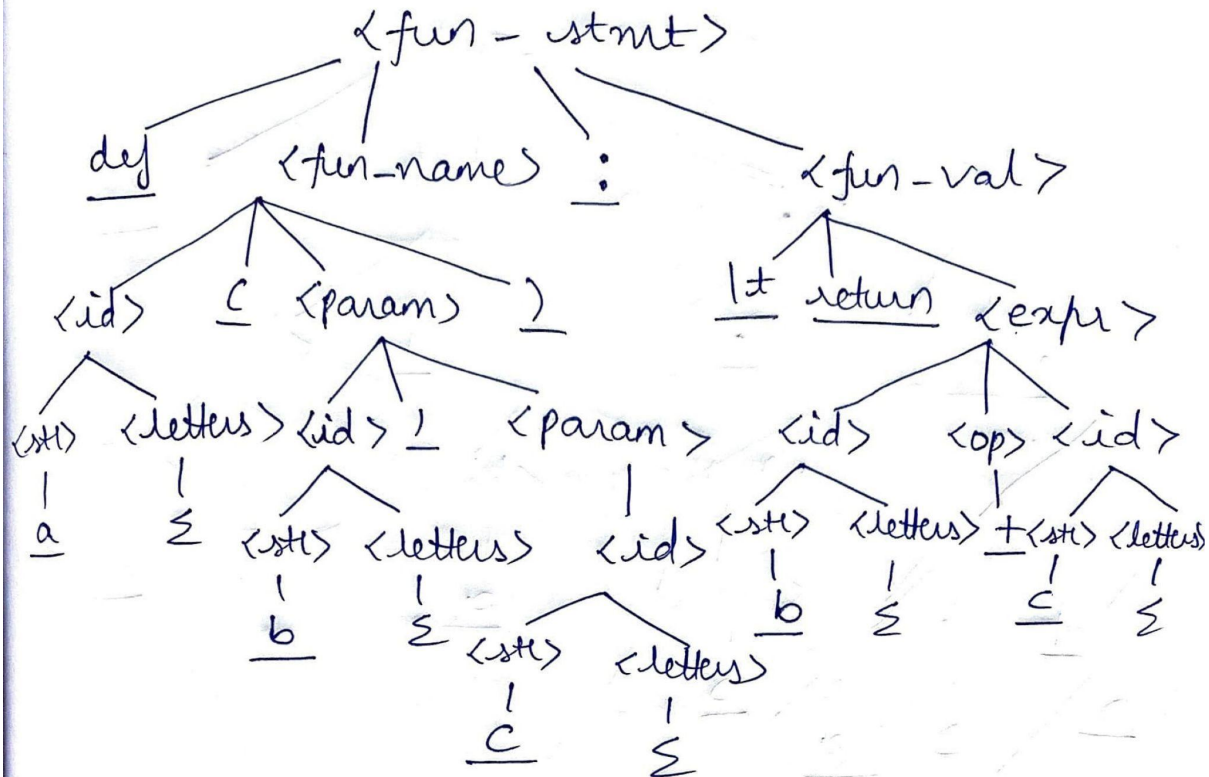 <fun - stmt>
def <fun_name> : <fun-val>
<id> ( <param> ) \t return <expr>
<str> <letters> <id> , <param> <id> <op> <id>
a Σ <str> <letters> <id> <str> <letters> + <str> <letters>
b Σ <str> <letters> b Σ c Σ
c Σ